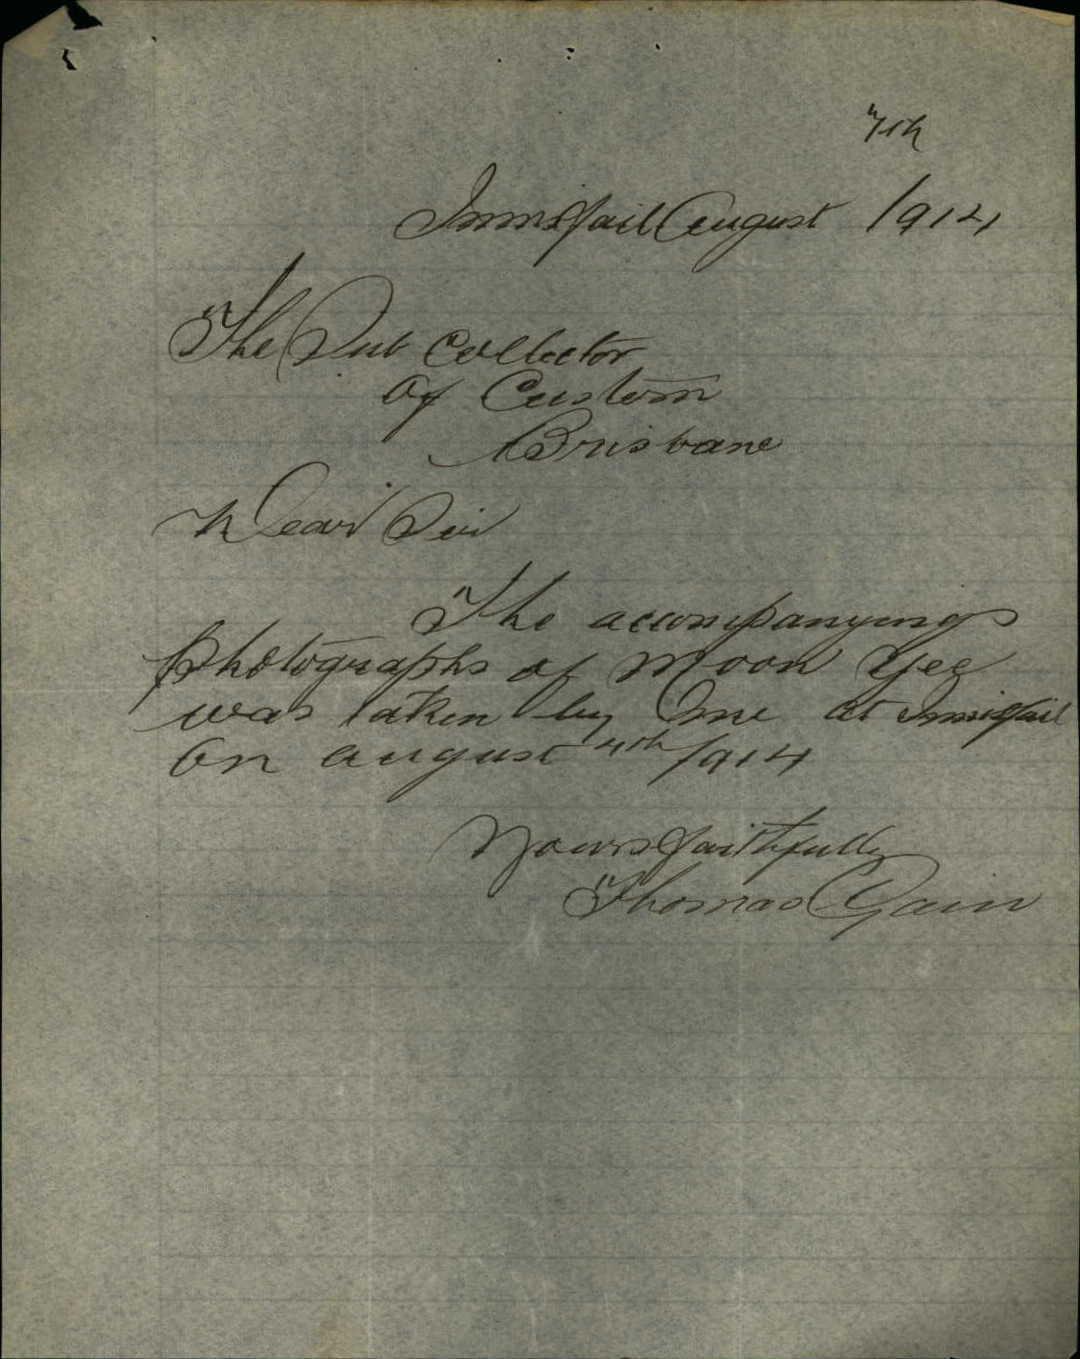 7th
Innisfail August 1914
The Sub Collector
of Custom
Brisbane
Dear Sir
The accompanying
Photographs of Moon Yee
was taken by me at Innisfail
on August 4th 1914
Yours faithfully
Thomas Gain